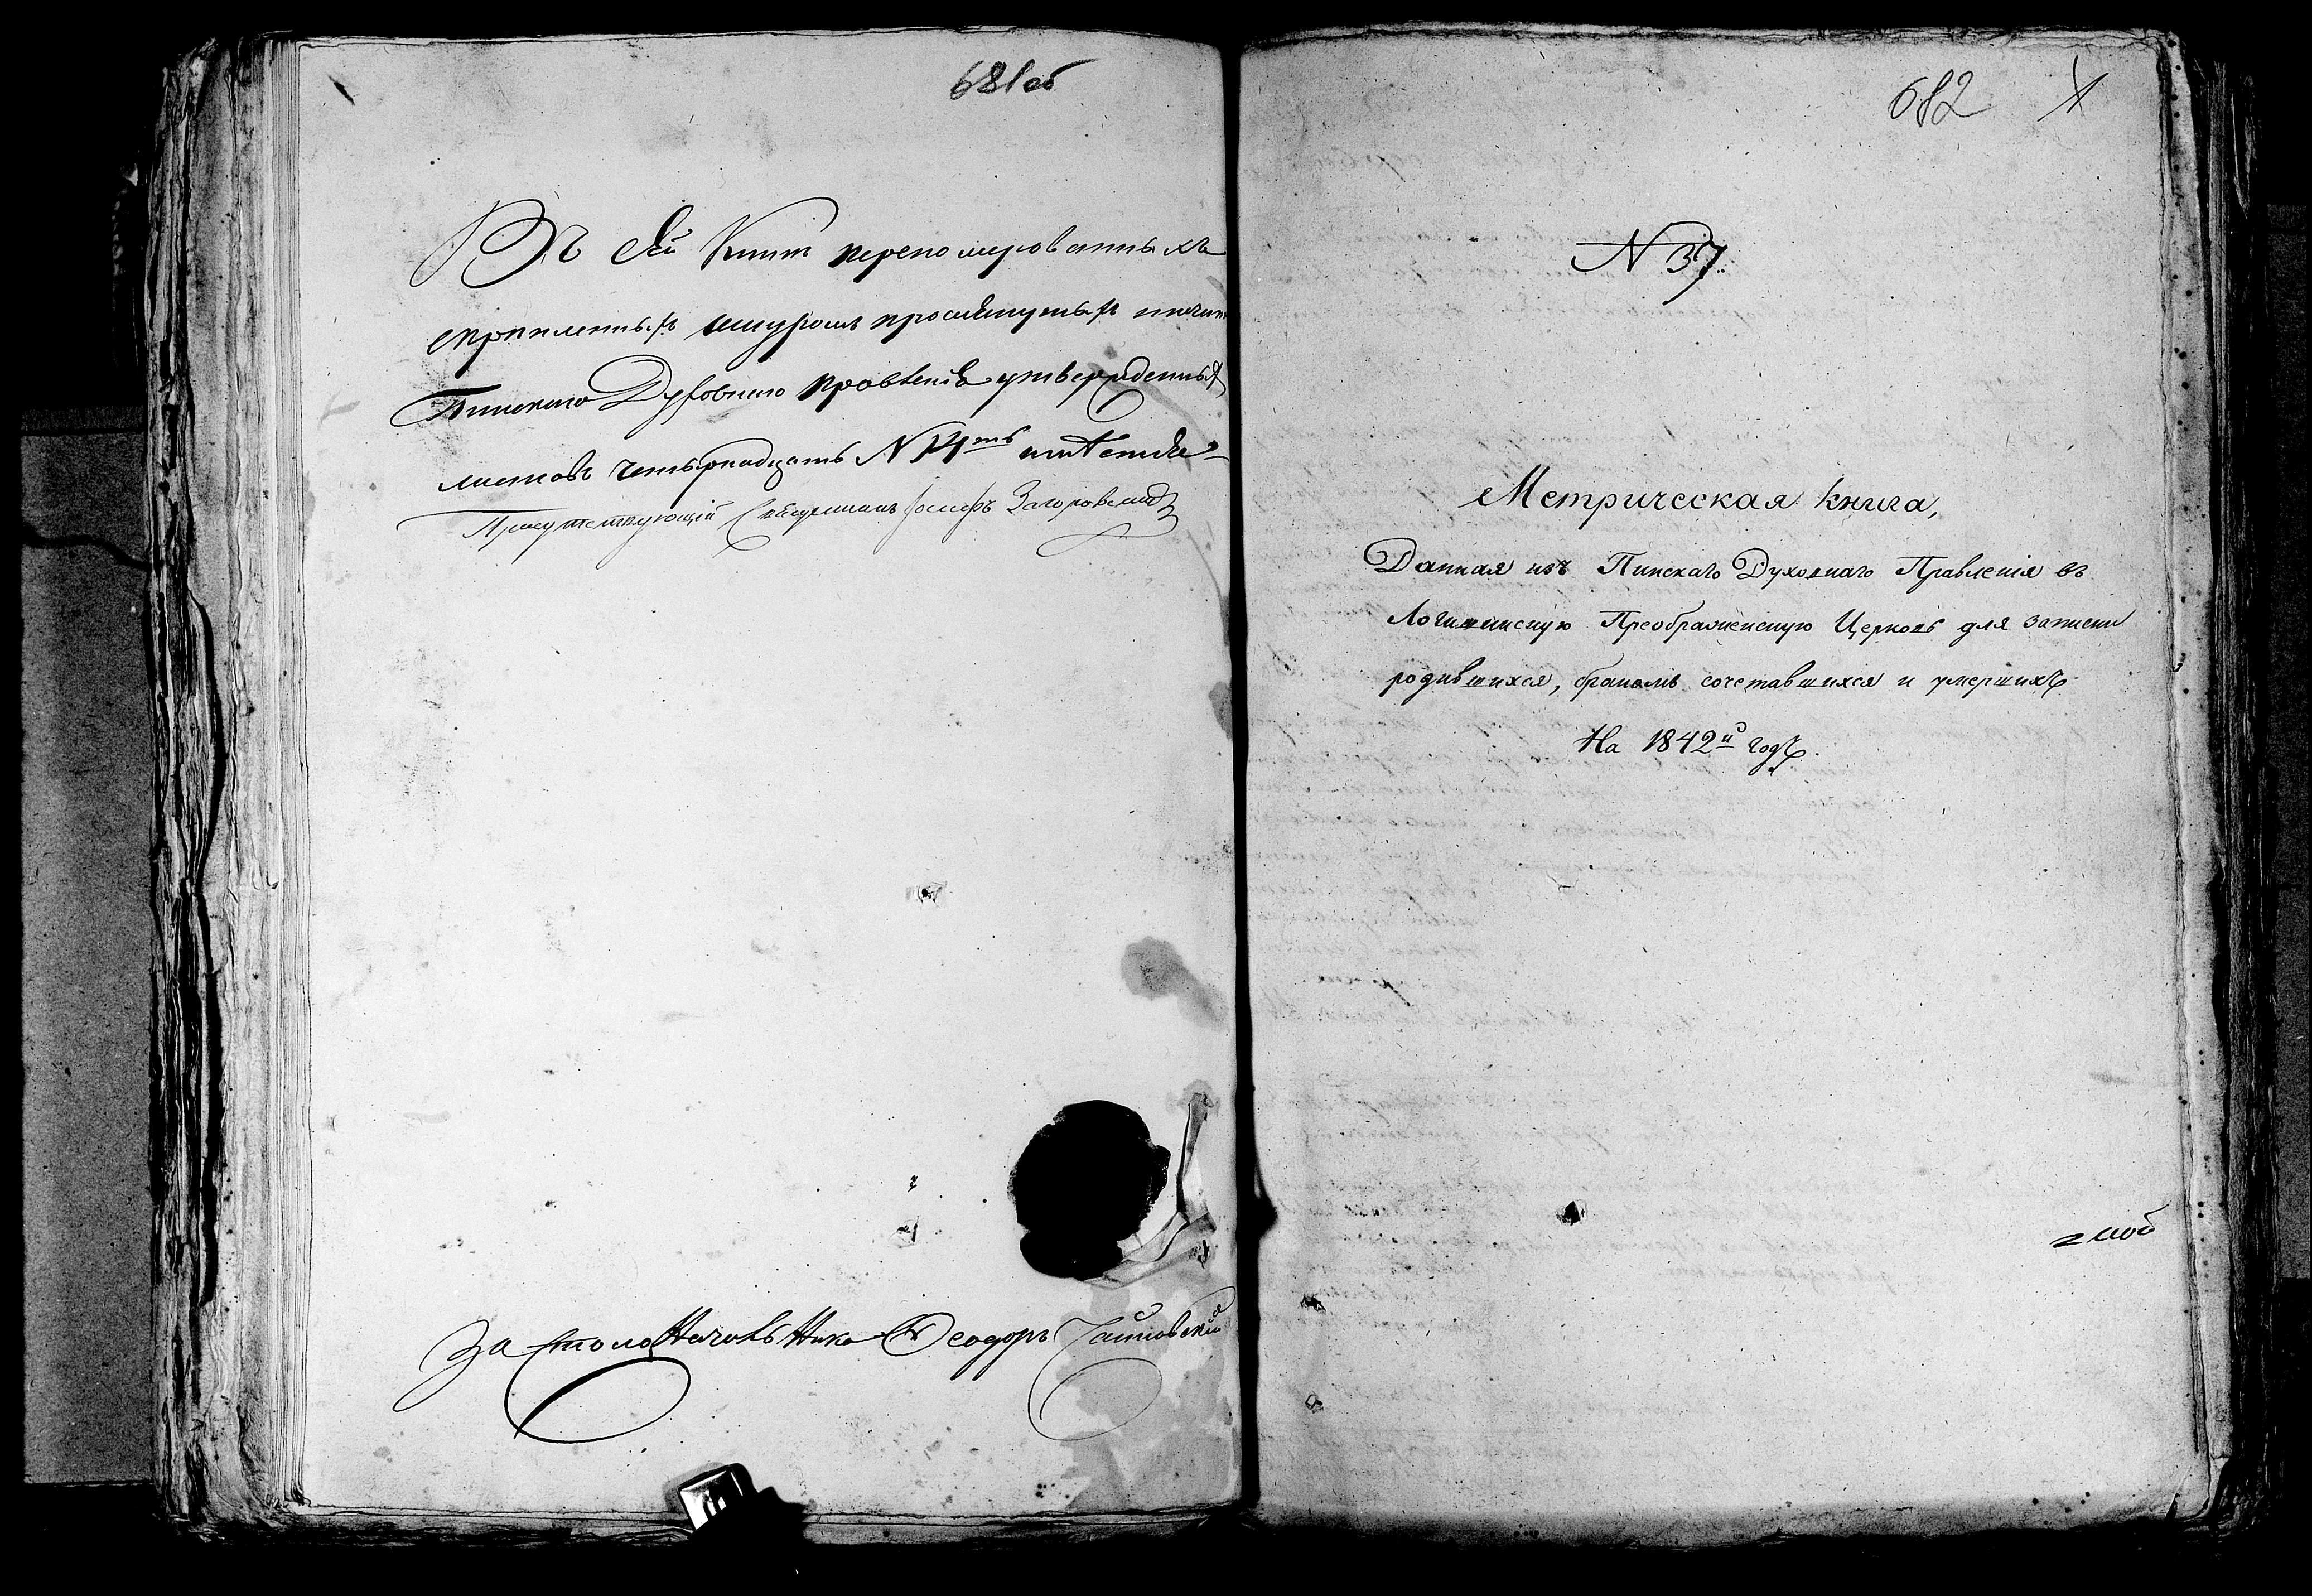 681 об
Въ сей Книге перенумерованныхъ
скрепленныхъ шнуромъ просшнутыхъ
Пинскаго Духовнаго Правленія утвержденныхъ
листовъ четырнадцать N 14
Присутствующій Священникъ Іосифъ Загоровскій
За Столоначальника Феодоръ
682
N 37.
Метрическая книга,
Данная изъ Пинскаго Духовнаго Правленія въ
Логишинскую Преображенскую Церковь для записки
родившихся, бракомъ сочетавшихся и умершихъ
На 1842й годъ.